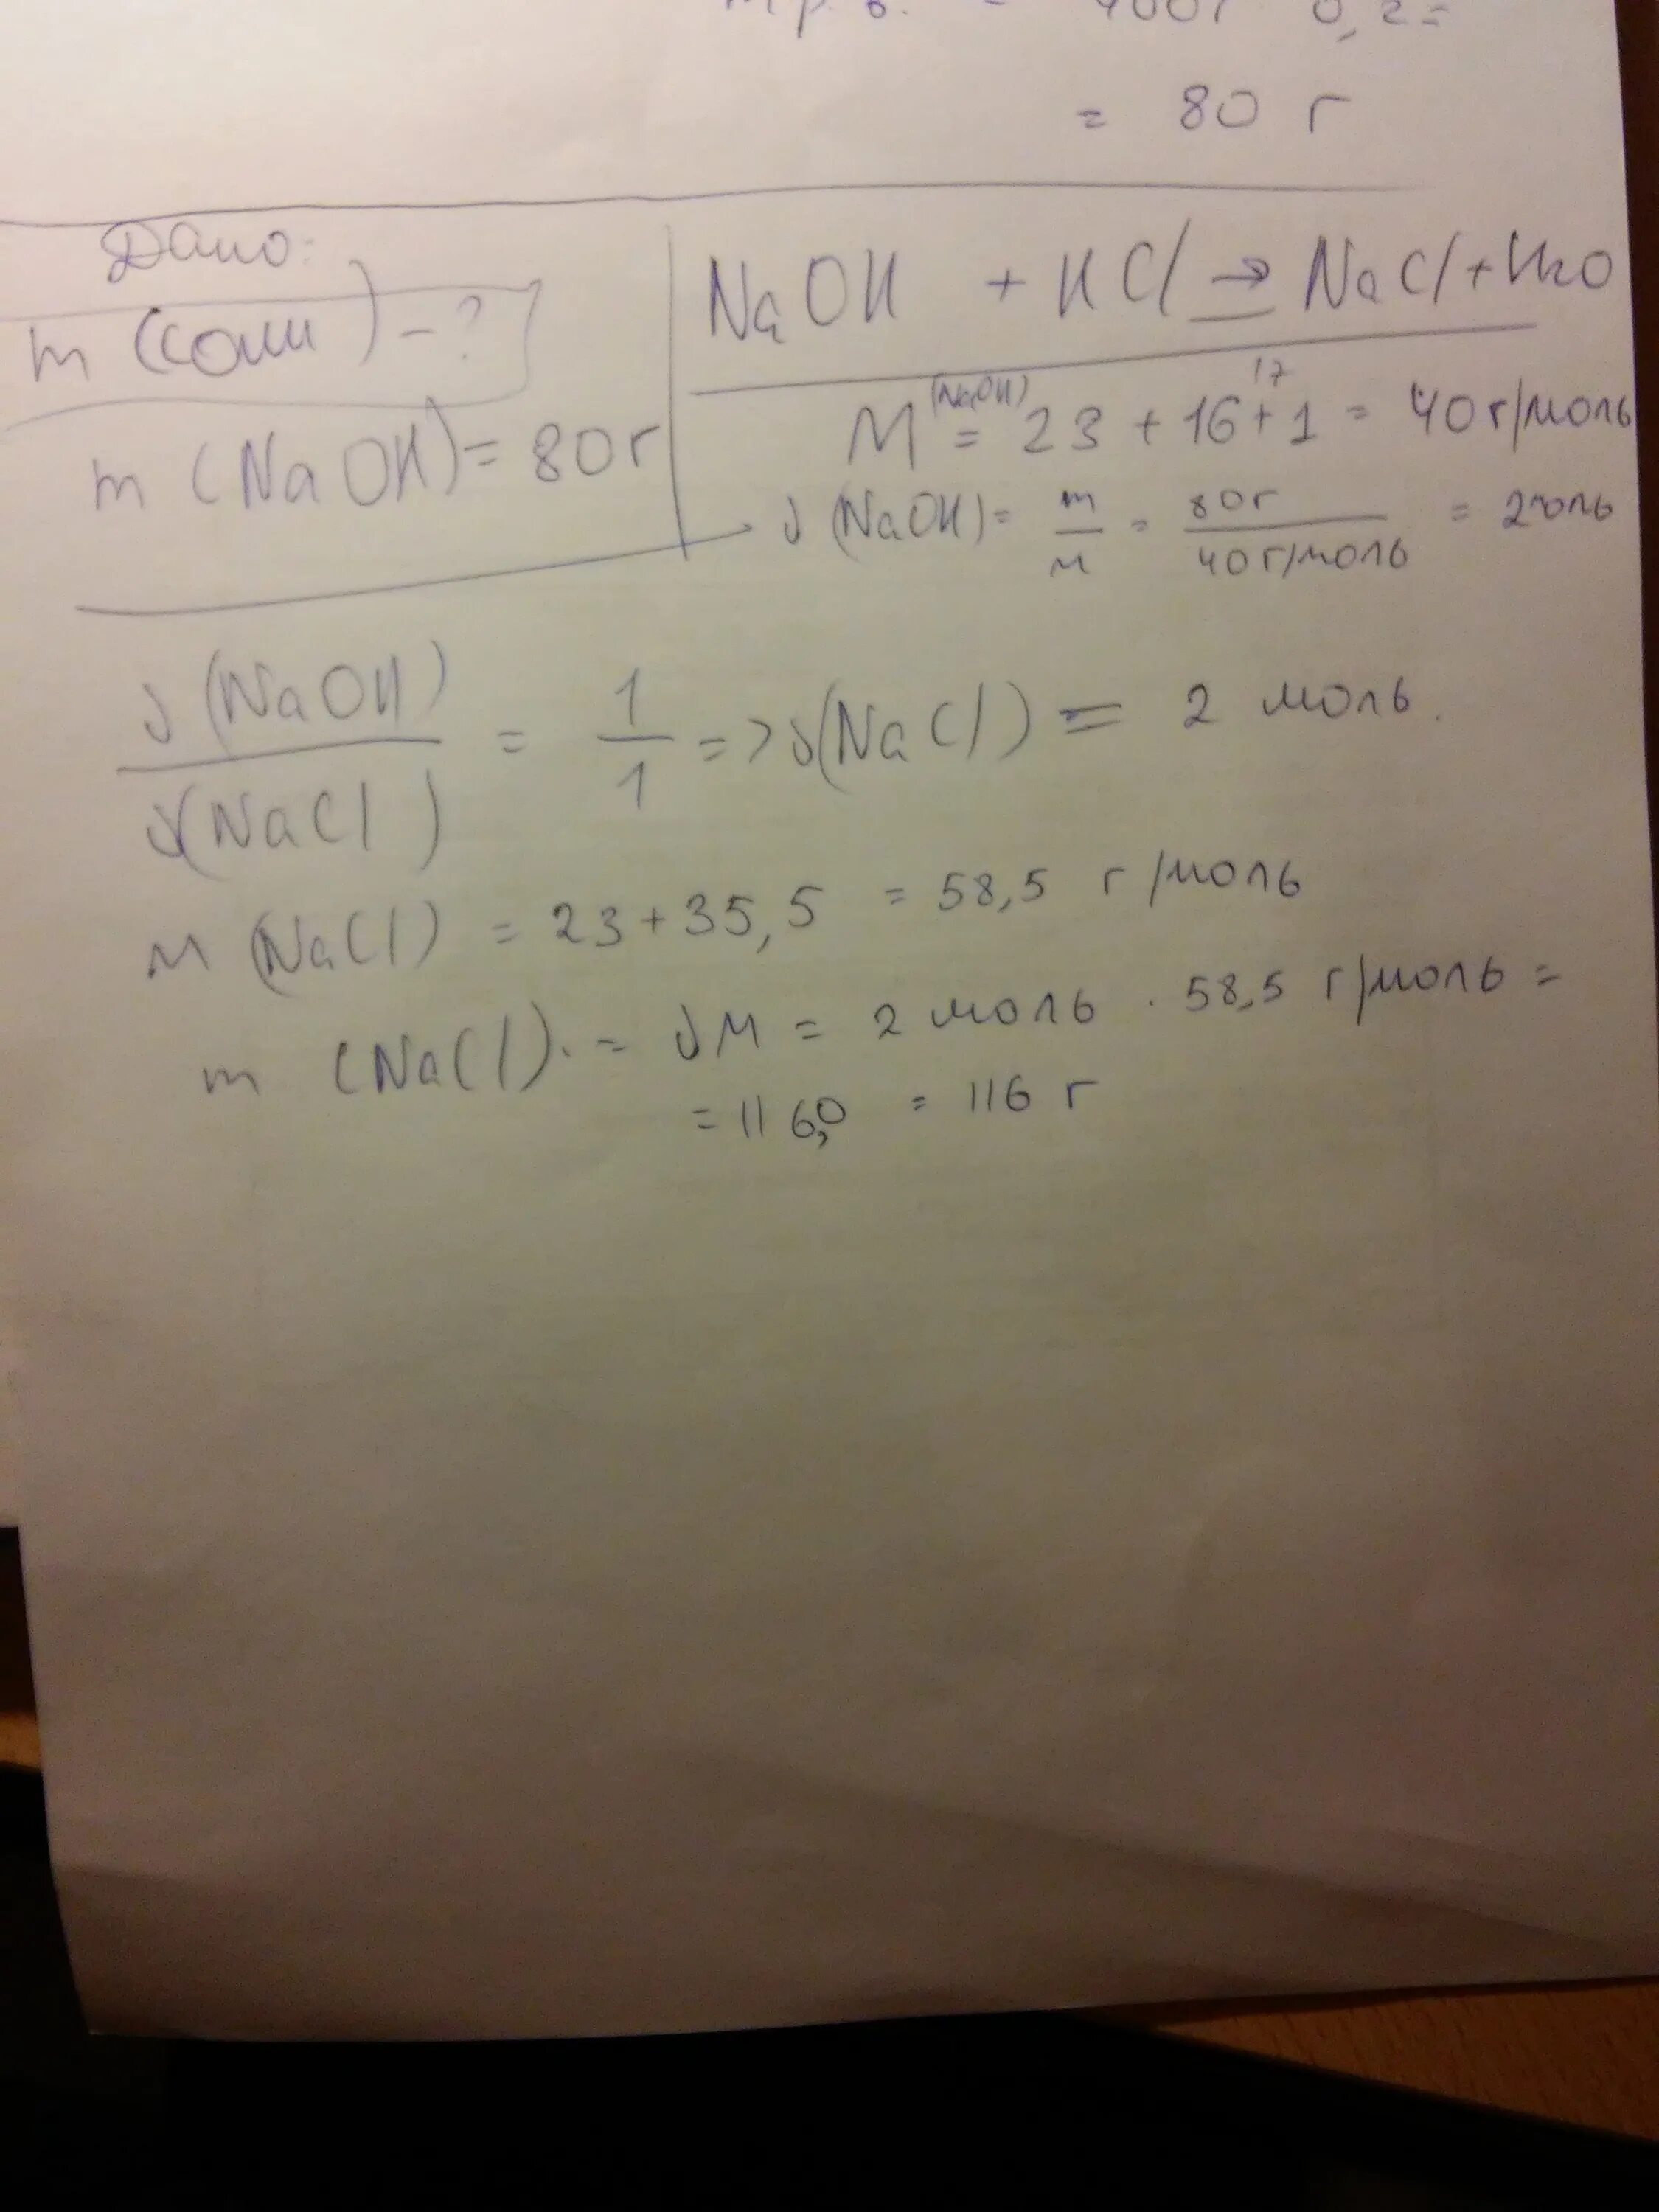 = 400г 0,2=
= 80 г
Дано:
m (соли) - ?
m (NaOH) = 80г
NaOH + HCl → NaCl + H2O
M (NaOH) = 23 + 16 + 1 = 40 г/моль
17
ν (NaOH) = m/M = 80г/40г/моль = 2моль
ν (NaOH)/ν(NaCl) = 1/1 => ν(NaCl) = 2 моль.
M (NaCl) = 23 + 35,5 = 58,5 г/моль
m (NaCl). = νM = 2 моль · 58,5 г/моль =
= 116,0 = 116 г